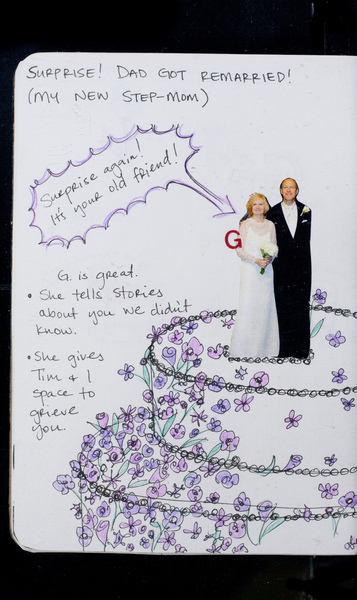 SURPRISE! DAD GOT REMARRIED!
(MY NEW STEP-MOM)
Surprise again!
It's your old friend!
G
G. is great.
• She tells stories
about you we didn't
know.
• She gives
Tim & I
space to
grieve
you.